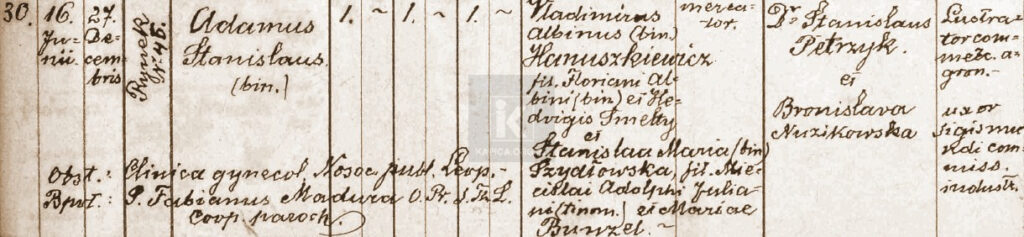 30.
16.
Ju-
nii
27.
De-
cem-
bris
Rynek
nr. 45.
Adamus
Stanislaus
(bin.)
1. ~ 1. ~ 1. ~
Vladimirus
Albinus (bin)
Hanuszkiewicz
fil. Floriani Al-
bini (bin) et He-
dvigis Smetty
et
Stanislaa Maria (bin)
Szydłowska, fil. Mie-
cislai Adolphi Julia-
ni (trinom.) et Mariae
Bunzel. ~
merca-
tor.
Dr Stanislaus
Petrzyk.
et
Bronislava
Nuzikowska
Lustra-
tor com-
merc. a-
gron.-
uxor
Sigismu
ndi com-
miss.
industr.
Obst.: Clinica gynecol. Nosoc. publ. Leop. -
Bpt.: P. Fabianus Madura O. Pr. S. Th. L.
Coop. paroch.
K